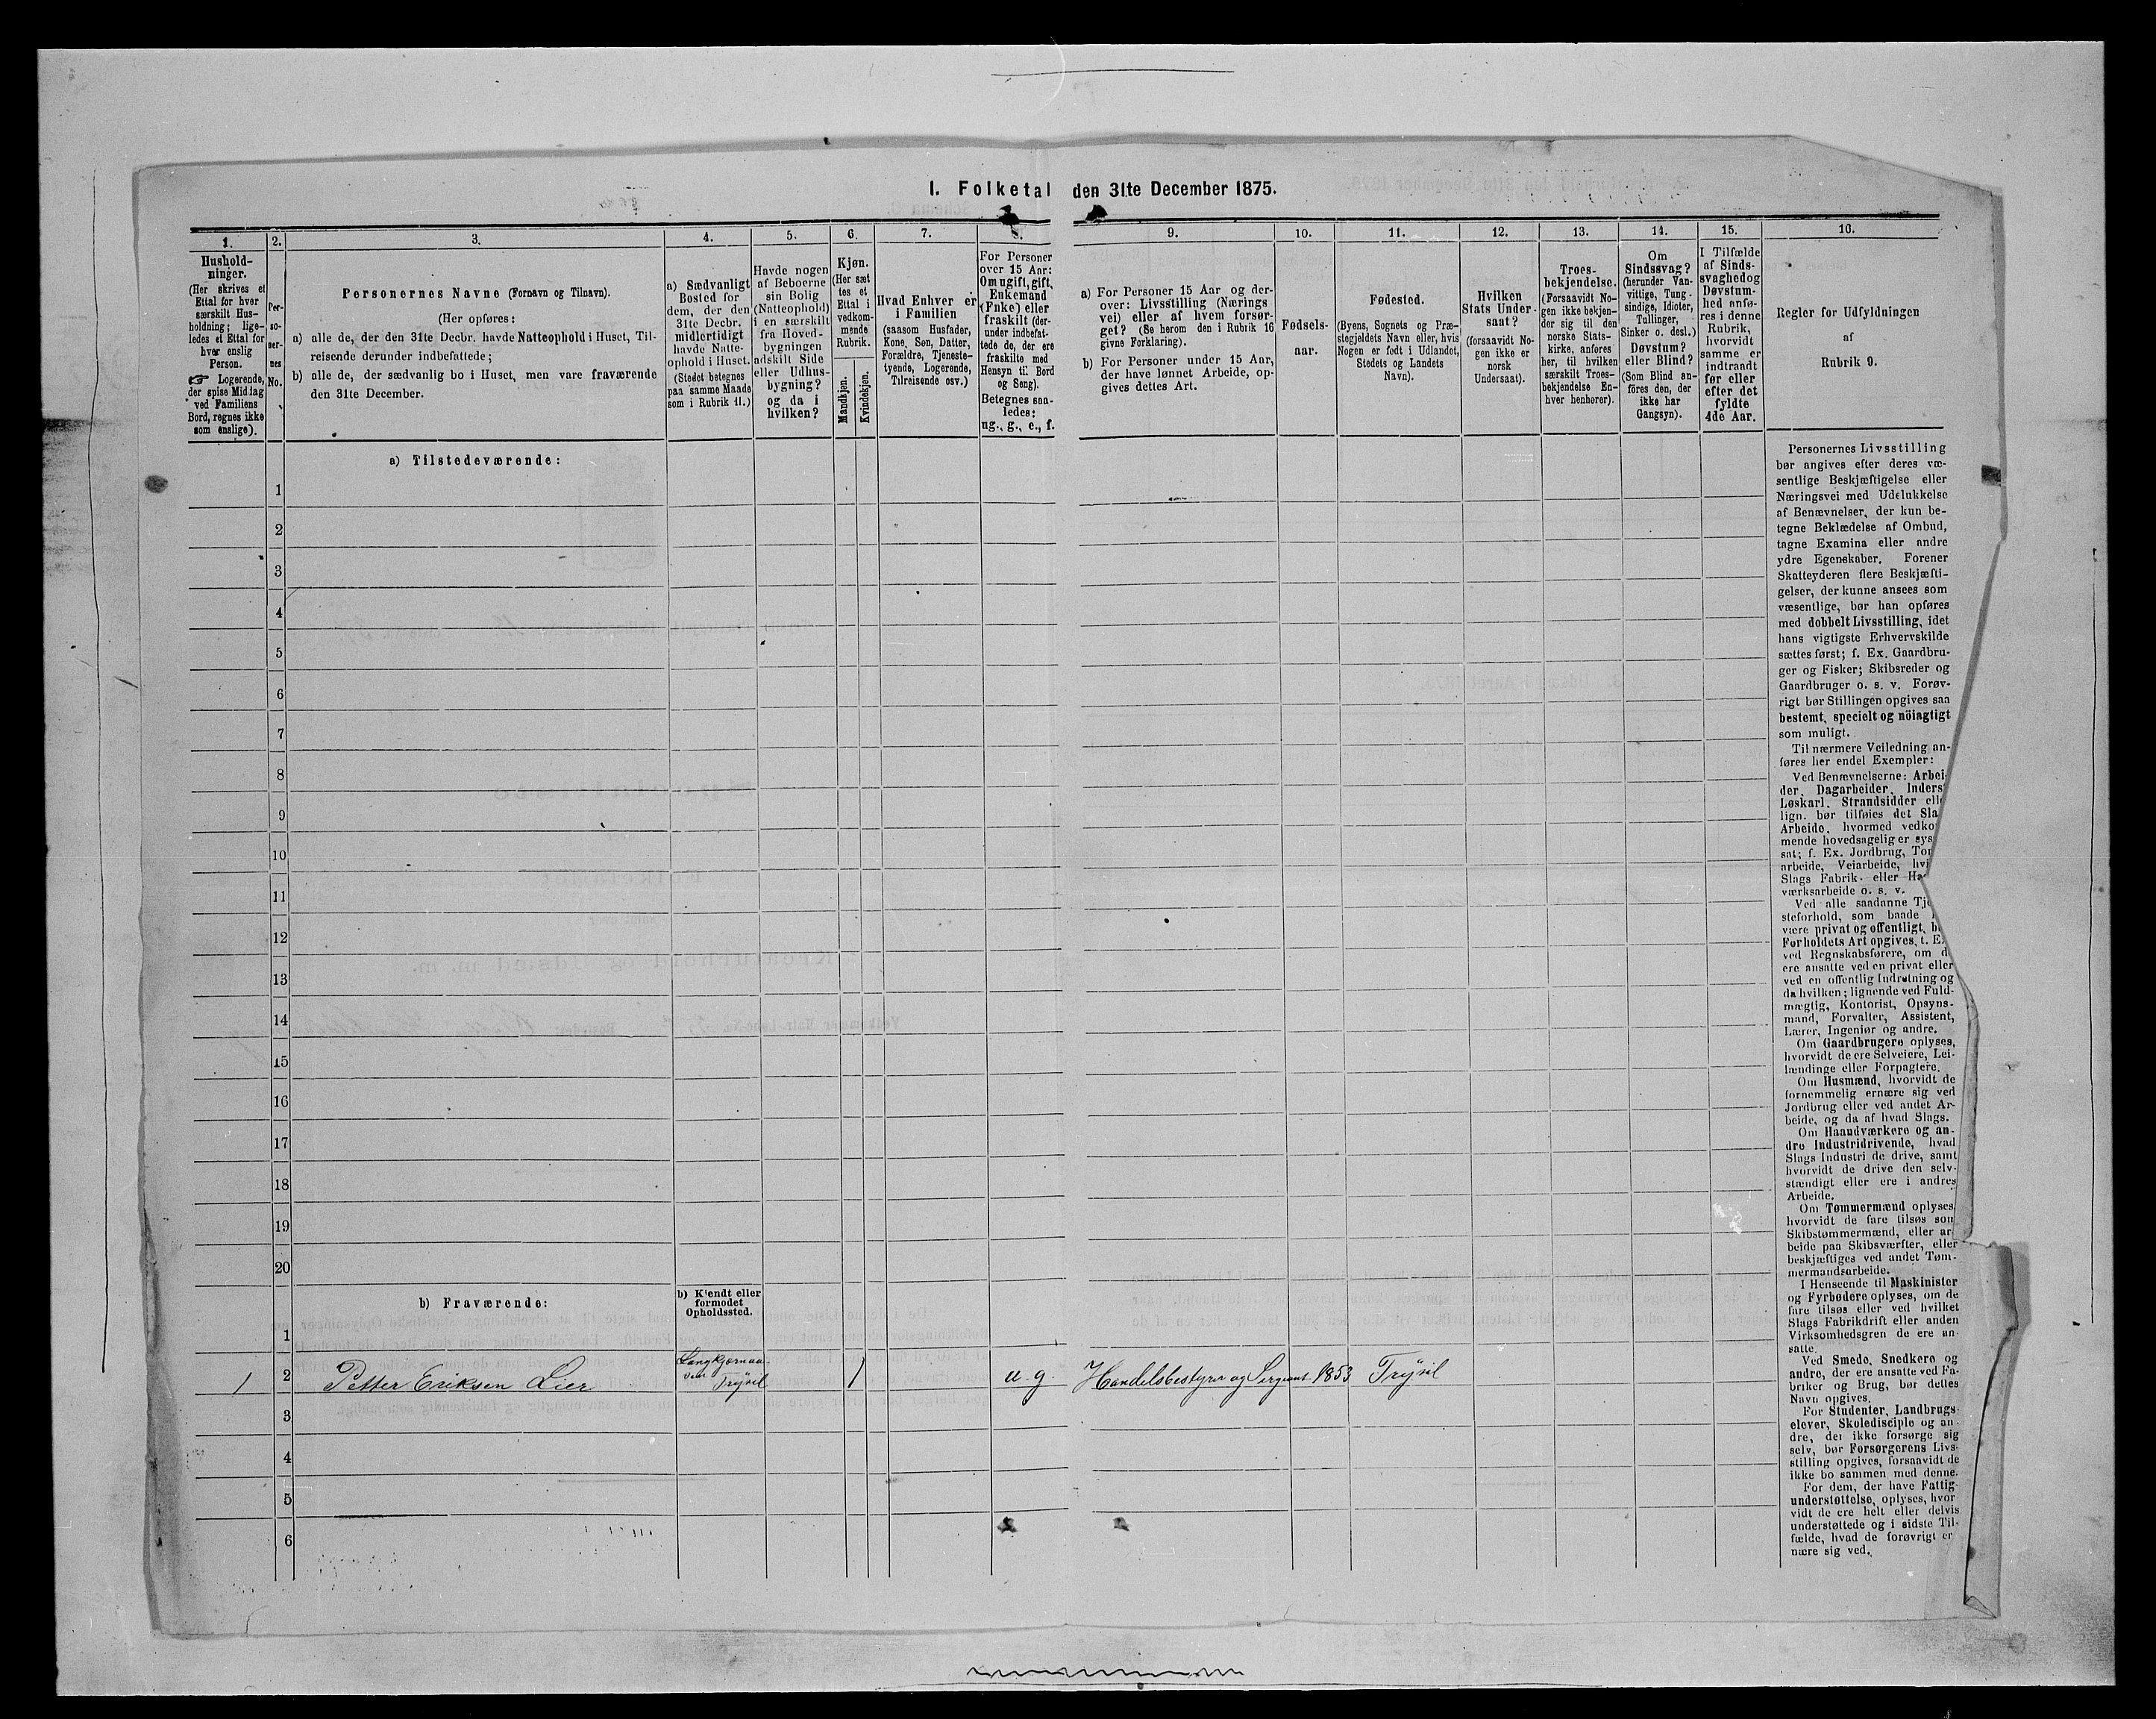 I. Folketal den 31te December 1875.
1.
Hushold-
ninger.
(Her skrives et
Ettal for hver
særskilt Hus-
holdning; lige-
ledes et Ettal for
hver enslig
Person.
☞ Logerende,
der spise Middag
ved Familiens
Bord, regnes ikke
som enslige).
2.
Per-
so-
ner-
nes
No.
3.
Personernes Navne (Fornavn og Tilnavn).
(Her opføres:
a) alle de, der den 31te Decbr. havde Natteophold i Huset, Til-
reisende derunder indbefattede;
b) alle de, der sædvanlig bo i Huset, men vare fraværende
den 31te December.
4.
a) Sædvanligt
Bosted for
dem, der den
31te Decbr.
midlertidigt
havde Natte-
ophold i Huset.
(Stedet betegnes
paa samme Maade
som i Rubrik 11.)
5.
Havde nogen
af Beboerne
sin Bolig
(Natteophold)
i en særskilt
fra Hoved-
bygningen
adskilt Side
eller Udhus-
bygning?
og da i
hvilken?
6.
Kjøn.
(Her sæt
tes et
Ettal i
vedkom-
mende
Rubrik.
Mandkjøn.
Kvindekjøn.
7.
Hvad Enhver er
i Familien
(saasom Husfader,
Kone, Søn, Datter,
Forældre, Tjeneste-
tyende, Logerende,
Tilreisende osv.)
8.
For Personer
over 15 Aar:
Om ugift, gift,
Enkemand
(Enke) eller
fraskilt (der-
under indbefat-
tede de, der ere
fraskilte med
Hensyn til Bord
og Seng).
Betegnes saa-
ledes:
ug., g., e., f.
9.
a) For Personer 15 Aar og der-
over: Livsstilling (Nærings
vei) eller af hvem forsør-
get? (Se herom den i Rubrik 16
givne Forklaring).
b) For Personer under 15 Aar,
der have lønnet Arbeide, op-
gives dettes Art.
10.
Fødsels-
aar.
11.
Fødested.
(Byens, Sognets og Præ-
stegjeldets Navn eller, hvis
Nogen er født i Udlandet,
Stedets og Landets
Navn).
12.
Hvilken
Stats Under-
saat?
(forsaavidt No-
gen ikke er
norsk
Undersaat).
13.
Troes-
bekjendelse.
(Forsaavidt No-
gen ikke bekjen-
der sig til den
norske Stats-
kirke, anføres
her, til hvilken
særskilt Troes-
bekjendelse En-
hver henhører).
14.
Om
Sindssvag?
(herunder Van-
vittige, Tung-
sindige, Idioter,
Tullinger,
Sinker o. desl.)
Døvstum?
eller Blind?
(Som Blind an-
føres den, der
ikke har
Gangsyn).
15.
I Tilfælde
af Sinds-
svaghed og
Døvstum-
hed anfø-
res i denne
Rubrik,
hvorvidt
samme er
indtraadt
før eller
efter det
fyldte
4de Aar.
16.
Regler for Udfyldningen
af
Rubrik 9.
a) Tilstedeværende:
1
2
3
4
5
6
7
8
9
10
11
12
13
14
15
16
17
18
19
20
b) Fraværende:
b) Kjendt eller
formodet
Opholdssted.
1
1 2 Petter Eriksen Lier Trysil 1 u. g. Handelsbestyrer og Sergeant 1853 Trysil
3
4
5
6
Personernes Livsstilling
bør angives efter deres væ-
sentlige Beskjæftigelse eller
Næringsvei med Udelukkelse
af Benævnelser, der kun be-
tegne Beklædelse af Ombud,
tagne Examina eller andre
ydre Egenskaber. Forener
Skatteyderen flere Beskjæfti-
gelser, der kunne ansees som
væsentlige, bør han opføres
med dobbelt Livsstilling, idet
hans vigtigste Erhvervskilde
sættes først; f. Ex. Gaardbru-
ger og Fisker; Skibsreder og
Gaardbruger o. s. v. Forøv-
rigt bør Stillingen opgives saa
bestemt, specielt og nöiagtigt
som muligt.
Til nærmere Veiledning an-
føres her endel Exempler:
Ved Benævnelserne: Arbei-
der, Dagarbeider, Inders
Løskarl, Strandsidder elle
lign. bør tilføies det Sla
Arbeide, hvormed vedko
mende hovedsagelig er sys
sat; f. Ex. Jordbrug, Tor
arbeide, Veiarbeide, hvi
Slags Fabrik- eller Ha
værksarbeide o. s. v.
Ved alle saadanne Tje
steforhold, som baade
være privat og offentligt, b
Forholdets Art opgives, t. E.
ved Regnskabsførere, om d
ere ansatte ved en privat eller
ved en offentlig Indretning og
da hvilken; lignende ved Fuld-
mægtig, Kontorist, Opsyns-
mand, Forvalter, Assistent,
Lærer, Ingeniør og andre.
Om Gaardbrugere oplyses,
hvorvidt de ere Selveiere, Lei-
lændinge eller Forpagtere.
Om Husmænd, hvorvidt de
fornemmelig ernære sig ved
Jordbrug eller ved andet Ar-
beide, og da af hvad Slags.
Om Haandværkere og an-
dre Industridrivende, hvad
Slags Industri de drive, samt
hvorvidt de drive den selv-
stændigt eller ere i andres
Arbeide.
Om Tømmermænd oplyses,
hvorvidt de fare tilsøs som
Skibstømmermænd, eller ar-
beide paa Skibsværfter, eller
beskjæftiges ved andet Tøm-
mermandsarbeide.
I Henseende til Maskinister
og Fyrbødere oplyses, om de
fare tilsøs eller ved hvilket
Slags Fabrikdrift eller anden
Virksomhedsgren de ere an-
satte.
Ved Smede, Snedkere og
andre, der ere ansatte ved Fa-
briker og Brug, bør dettes
Navn opgives.
For Studenter, Landbrugs-
elever, Skoledisciple og an-
dre, der ikke forsørge sig
selv, bør Forsørgerens Livs-
stilling opgives, forsaavidt de
ikke bo sammen med denne.
For dem, der have Fattig-
understøttelse, oplyses, hvor
vidt de ere helt eller delvis
understøttede og i sidste Til-
fælde, hvad de forøvrigt er
nære sig ved.